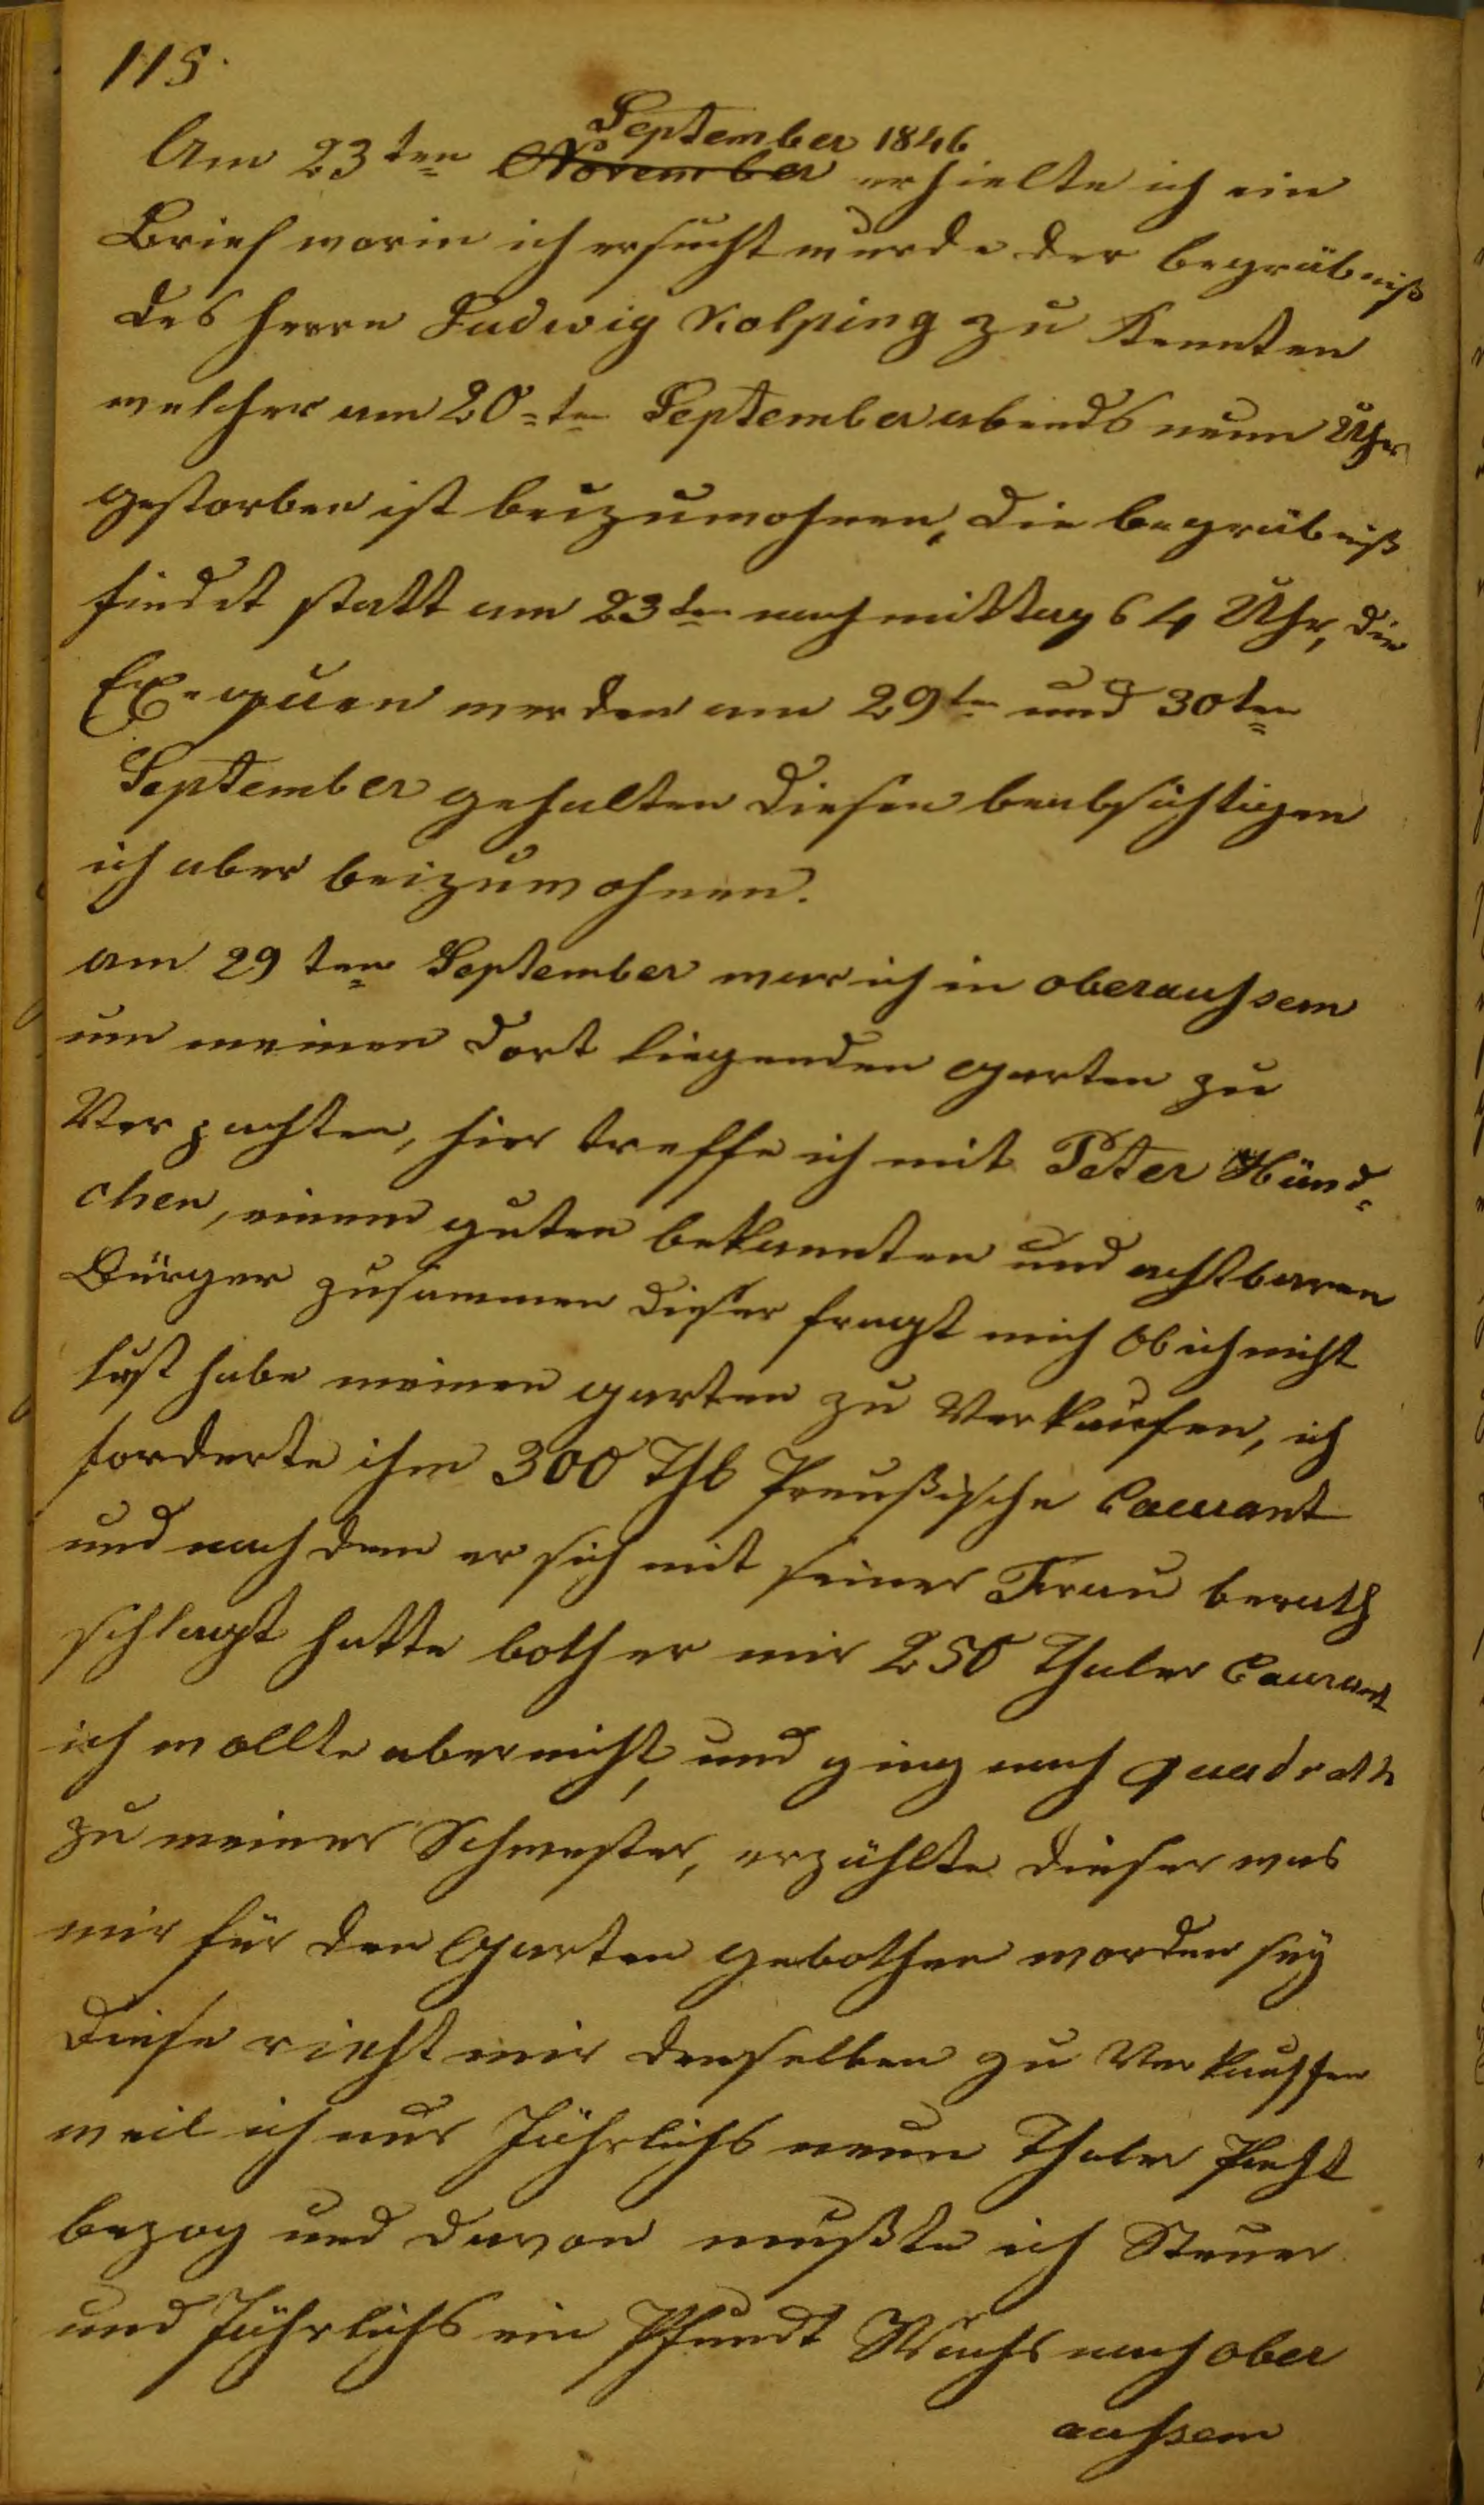 115.
September 1846
Am 23ten November erhielte ich ein
Brief worin ich ersucht wurde der begräbniß
des herrn Ludwig Kolping zu Kenten
welcher am 20-ten September abends neun Uhr
gestorben ist beizuwohnen, die begräbniß
findet statt am 23ten nachmittags 4 Uhr, die
Exequien werden am 29ten und 30ten
September gehalten diesen beabsichtigen
ich aber beizuwohnen.
am 29ten September war ich in oberaussem
um meinen dort liegenden garten zu
Verpachten, hier treffe ich mit Peter Hünd-
chen, einem guten bekannten und achtbaren
Bürger zusammen dieser fragt mich ob ich nicht
lust habe meinen garten zu Verkaufen, ich
forderte ihm 300 Thl Preußische Courant
und nach dem er sich mit seiner Frau berath
schlagt hatte both er mir 250 Thaler Courant
ich wollte aber nicht, und ging nach quadrath
zu meiner Schwester, erzählte dieser was
mir für den Garten gebothen worden sey
Diese rieht mir denselben zu Verkauffen
weil ich nur Jährlichs neun Thaler Pacht
bezog und davon mußte ich Steuer
und Jährlichs ein Pfundt Wachs nach ober
aussem